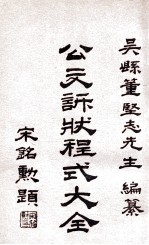 吳縣董堅志先生 編纂
公文訴狀程式大全
宋銘勳題